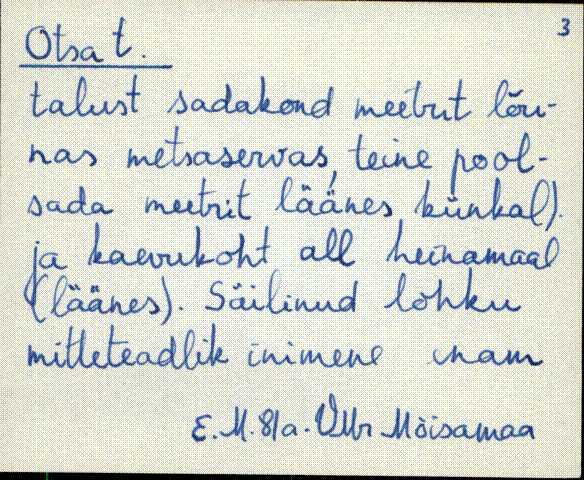 3
Otsa t.
talust sadakond meetrit lõu-
nas metsaservas, teine pool-
sada meetrit läänes künkal).
ja kaevukoht all heinamaal
(läänes). Säilinud lõhku
mitteteadlik inimene enam
E.M. 81a. Mõisamaa